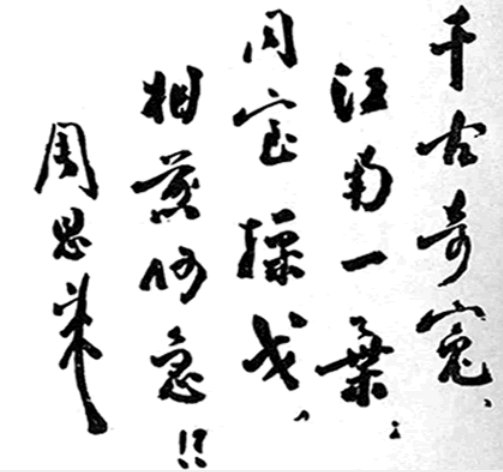 千古奇冤、
江南一葉；
同室操戈、
相煎何急！！
周恩來